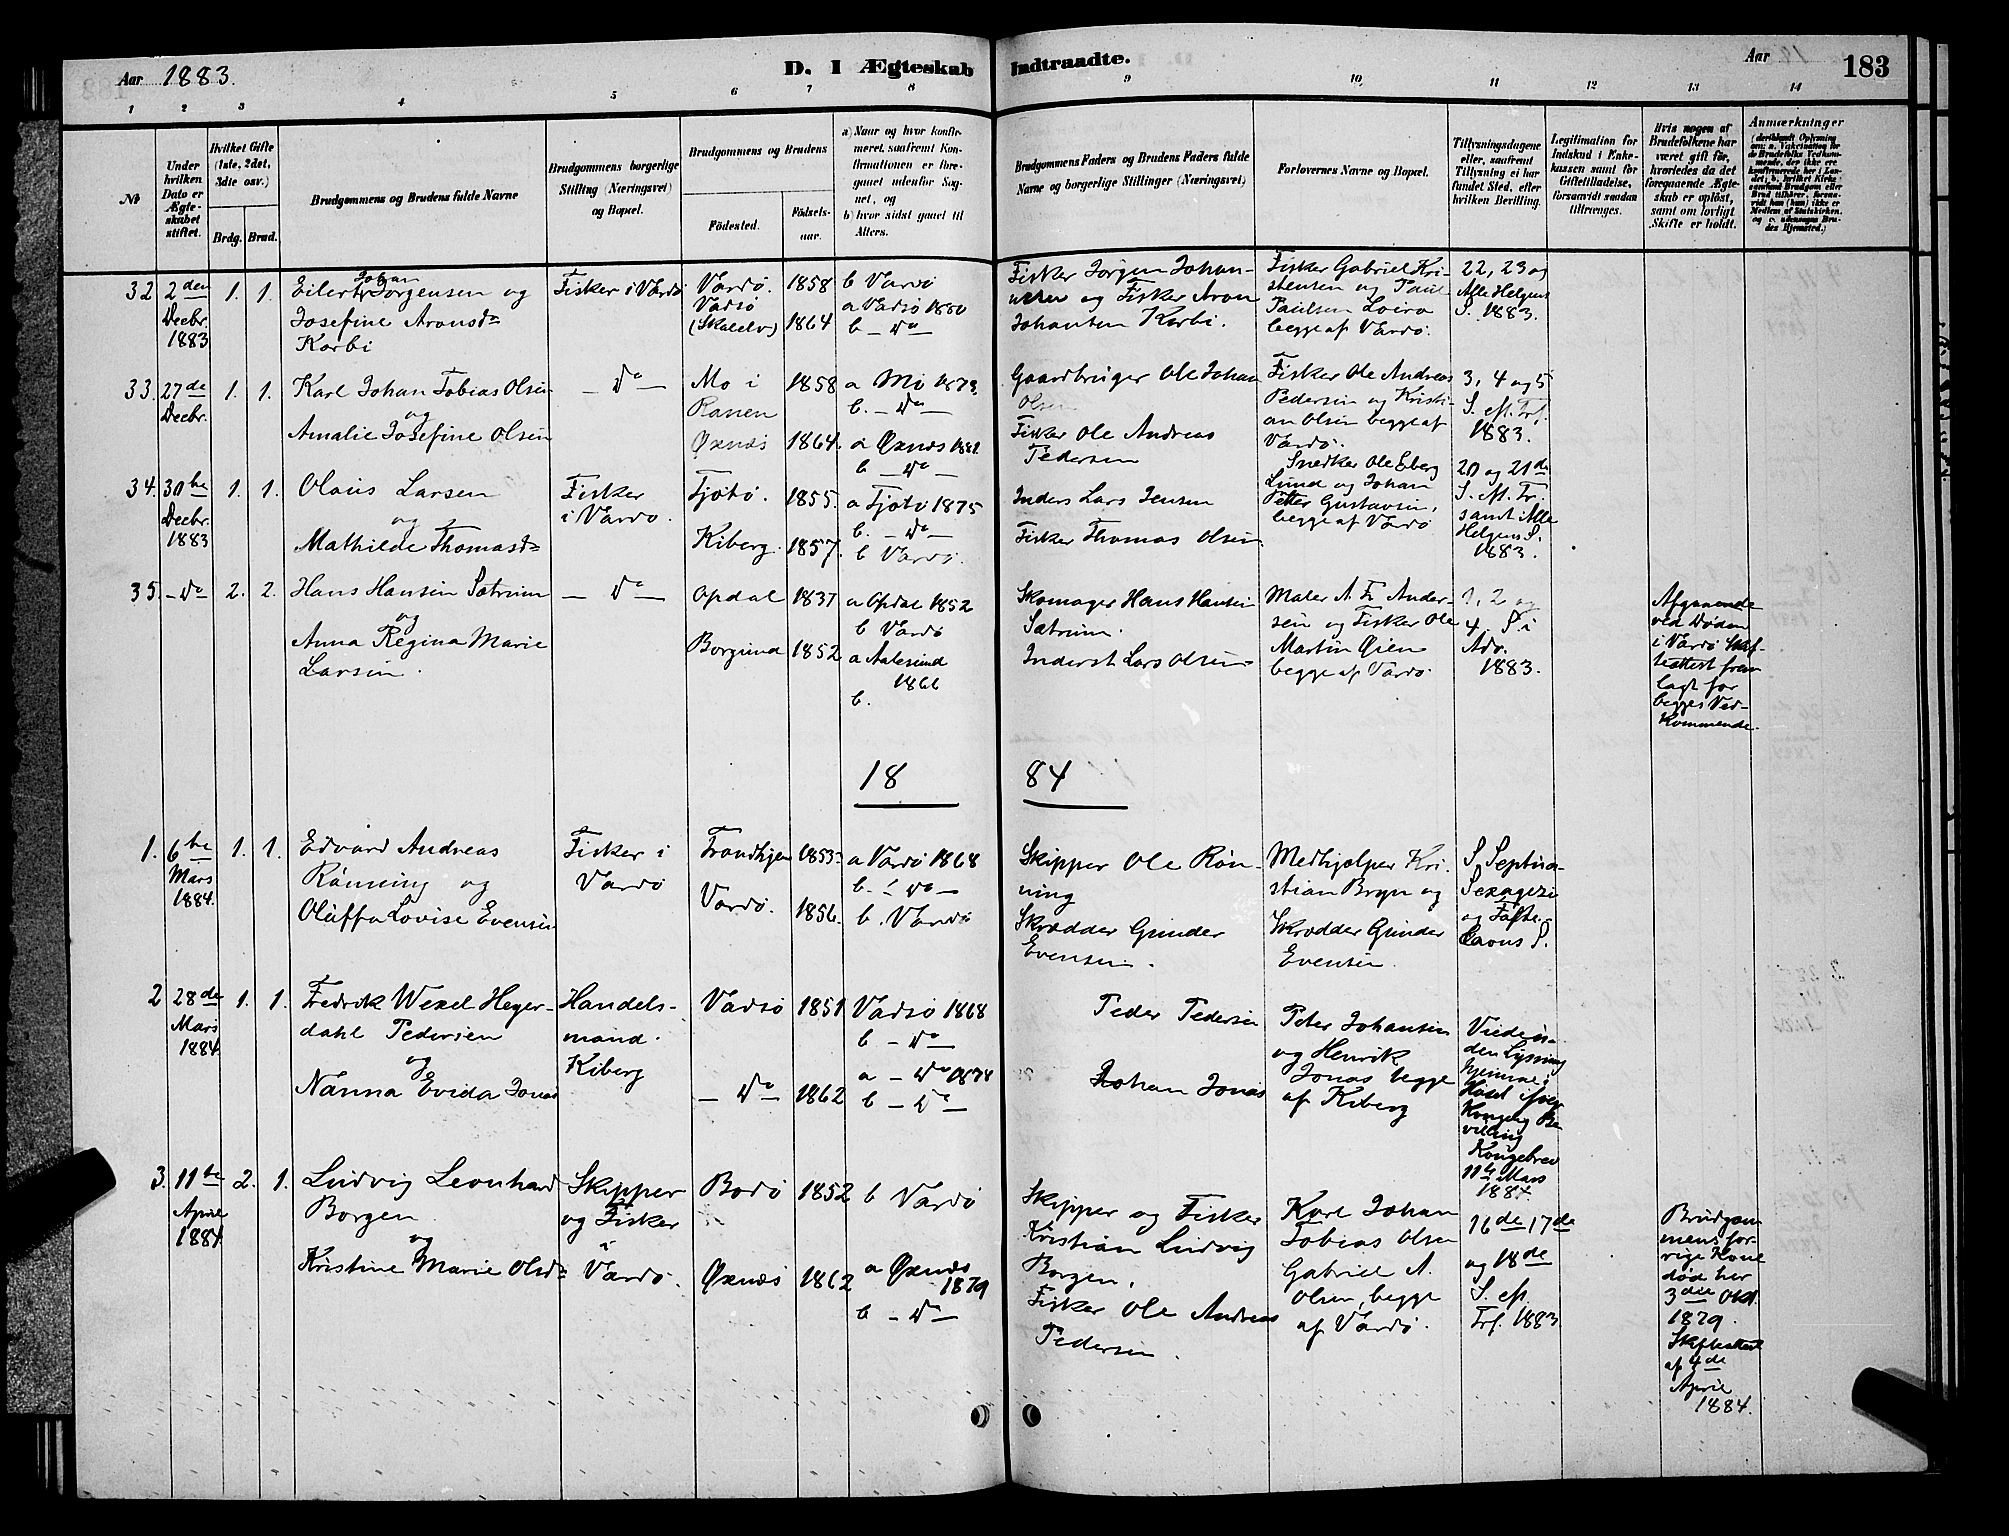 Aar 1883.
D. I Ægteskab Indtraadte.
Aar 18
183
1 2 3 4 5 6 7 8 9 10 11 12 13 14
№
Under hvilken Dato er Ægteskabet stiftet.
Hvilket Gifte (1ste, 2det, 3die osv.)
Brdg. Brud.
Brudgommens og Brudens fulde Navne
Brudgommens borgerlige Stilling (Næringsvei) og Bopæl.
Brudgommens og Brudens
Fødested.
Fødselsaar.
a) Naar og hvor konfirmeret, saafremt Konfirmationen er foregaaet udenfor Sognet, og
b) hvor sidst gaaet til Alters.
Brudgommens Faders og Brudens Faders fulde Navne og borgerlige Stillinger (Næringsvei)
Forlovernes Navne og Bopæl.
Tillysningsdagene eller, saafremt Tillysning ei har fundet Sted, efter hvilken Bevilling.
Legitimation for Indskud i Enkekassen samt for Giftetilladelse, forsaavidt saadan tiltrænges.
Hvis nogen af Brudefolkene har været gift før, hvorledes da det foregaaende Ægteskab er opløst, samt om lovligt Skifte er holdt.
Anmærkninger
32 2den Decbr. 1883
1. 1.
Eilert Johan Jørgensen og
Josefine Aronsd.
Karbi
Fisker i Vardø
Vardø. 1858
Vadsø (Skalelv) 1864
b Vardø
a Vadsø 1880
b – do –
Fisker Jørgen Johan-
nesen og Fisker Aron
Johansen Karbi.
Fisker Gabriel Kri-
stensen og Paul
Paulsen Loira
begge af Vardø.
22, 23 og
Alle Helgens
S. 1883.
33. 27de Decbr.
1. 1.
Karl Johan Tobias Olsen
og
Amalie Josefine Olsen
– do –
Mo i Ranen 1858
Øxnæs 1864.
a Mo 1873.
b. – do –
a Øxnæs 1881
b – do –
Gaardbruger Ole Johan
Olsen
Fisker Ole Andreas
Pedersen
Fisker Ole Andreas
Pedersen og Kristi-
an Olsen begge af
Vardø.
3, 4 og 5
S. eft. Trf.
1883.
34. 30te Decbr. 1883
1. 1.
Olaus Larsen
og
Mathilde Thomasd.
Fisker
i Vardø.
Tjøtø. 1855.
Kiberg. 1857.
a Tjøtø 1875
b. – do –
b Vardø.
Inders Lars Jensen
Fisker Thomas Olsen.
Snedker Ole Eberg
Lund og Johan
Petter Gustavsen,
begge af Vardø
20 og 21de
S. eft. Tr.
samt Alle
Helgens S.
1883.
35. – do
2. 2.
Hans Hansen Sætrum
og
Anna Regina Marie
Larsen.
– do –
Opdal 1837
Borgund 1852
a Opdal 1852
b Vardø
a Aalesund
1866
b.
Skomager Hans Hansen
Sætrum.
Inderst Lars Olsen
Maler A. Fr. Ander-
sen og Fisker Ole
Martin Øien
begge af Vardø.
1, 2 og
4 S. i
Adv.
1883.
Afgaaende
ved Døden
i Vardø Skif-
teattest frem
lagt for
begges Ved-
kommende.
18 84
1. 6te Mars 1884.
1. 1.
Edvard Andreas
Rønning og
Oluffa Lovise Evensen
Fisker i
Vardø
Trondhjem 1853.
Vardø. 1856.
a Vardø 1868
b. – do –
b. Vardø
Skipper Ole Røn-
ning
Skrædder Gunder
Evensen.
Medhjælper Kri-
stian Bryn og
Skrædder Gunder
Evensen
S. Septua-
Sexagesi
og Faste-
lavns S.
2 28de Mars 1884
1. 1.
Fredrik Wexel Heger-
dahl Pedersen
og
Nanna Evida Jonas
Handels-
mand.
Kiberg
Vadsø 1851
– do – 1862
Vadsø 1868
b – do –
a – do 1874
b – do –
Peder Pedersen
Johan Jonas
Peter Johansen
og Henrik
Jonas begge
af Kiberg
Viede u-
den Lysning
hjemme i
Huset ifølge
Kongelig Be
villing
Kongebrev
11te Mars
1884.
3. 11te April 1884
2. 1.
Ludvig Leonhard
Borgen
og
Kristine Marie Olsd.
Skipper
og Fisker
i
Vardø.
Bodø 1852
Øxnæs 1862
b Vardø
a Øxnæs
1879
b – do –
Skipper og Fisker
Kristian Ludvig
Borgen,
Fisker Ole Andreas
Pedersen.
Karl Johan
Tobias Olsen
Gabriel A.
Olsen, begge
af Vardø.
16de 17de
og 18de
S. eft.
Trf. 1883
Brudgom
mens for-
rige Kone
død her
3die Okt.
1879.
Skifteattest
af 4de
April
1884.